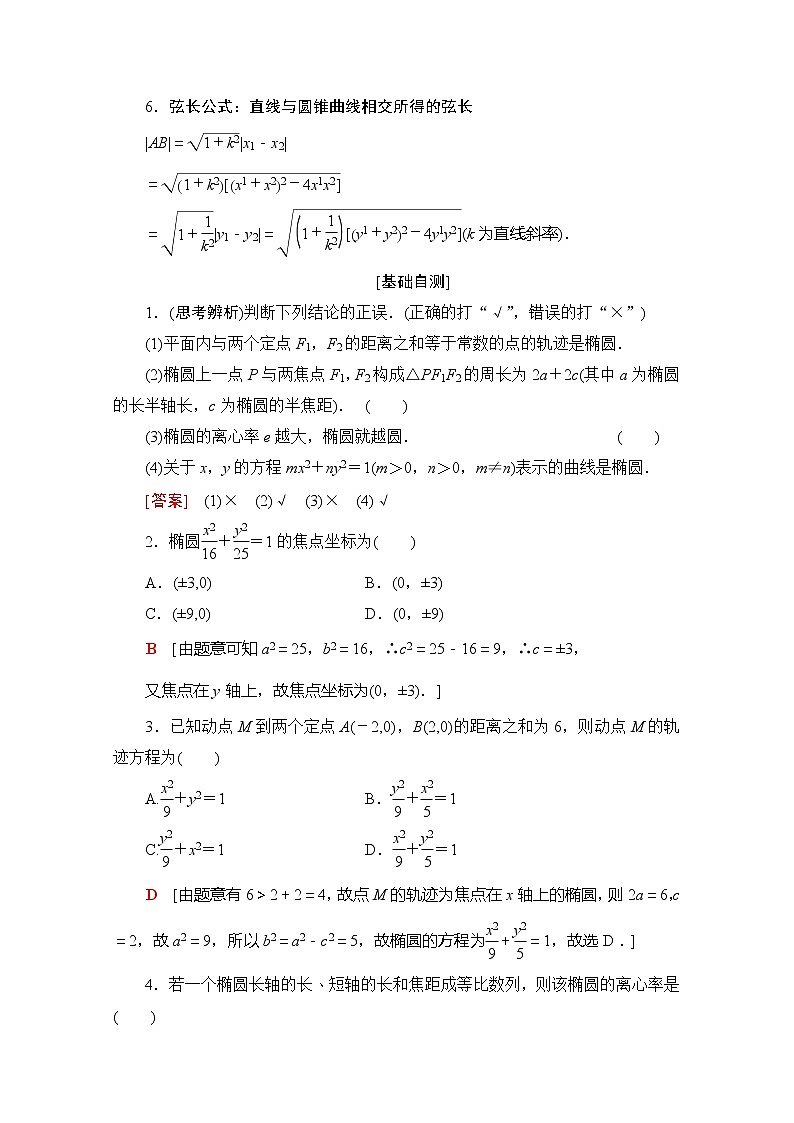 6．弦长公式：直线与圆锥曲线相交所得的弦长
|AB|＝√(1＋k²)|x₁－x₂|
＝√((1＋k²)[(x1＋x2)2－4x1x2])
＝√(1＋1/k²)|y₁－y₂|＝√((1＋1/k²)[(y1＋y2)2－4y1y2])(k为直线斜率)．
[基础自测]
1．(思考辨析)判断下列结论的正误．(正确的打“√”，错误的打“×”)
(1)平面内与两个定点F₁，F₂的距离之和等于常数的点的轨迹是椭圆．
(2)椭圆上一点P与两焦点F₁，F₂构成△PF₁F₂的周长为2a＋2c(其中a为椭圆
的长半轴长，c为椭圆的半焦距)． (　　)
(3)椭圆的离心率e越大，椭圆就越圆． (　　)
(4)关于x，y的方程mx²＋ny²＝1(m＞0，n＞0，m≠n)表示的曲线是椭圆．
[答案]　(1)×　(2)√　(3)×　(4)√
2．椭圆x2/16＋y2/25＝1的焦点坐标为(　　)
A．(±3,0)　B．(0，±3)
C．(±9,0)　D．(0，±9)
B　[由题意可知a²＝25，b²＝16，∴c²＝25－16＝9，∴c＝±3，
又焦点在y轴上，故焦点坐标为(0，±3)．]
3．已知动点M到两个定点A(－2,0)，B(2,0)的距离之和为6，则动点M的轨
迹方程为(　　)
A.x2/9＋y²＝1　B．y2/9＋x2/5＝1
C.y2/9＋x²＝1　D．x2/9＋y2/5＝1
D　[由题意有6＞2＋2＝4，故点M的轨迹为焦点在x轴上的椭圆，则2a＝6，c
＝2，故a²＝9，所以b²＝a²－c²＝5，故椭圆的方程为x2/9＋y2/5＝1，故选D．]
4．若一个椭圆长轴的长、短轴的长和焦距成等比数列，则该椭圆的离心率是
(　　)